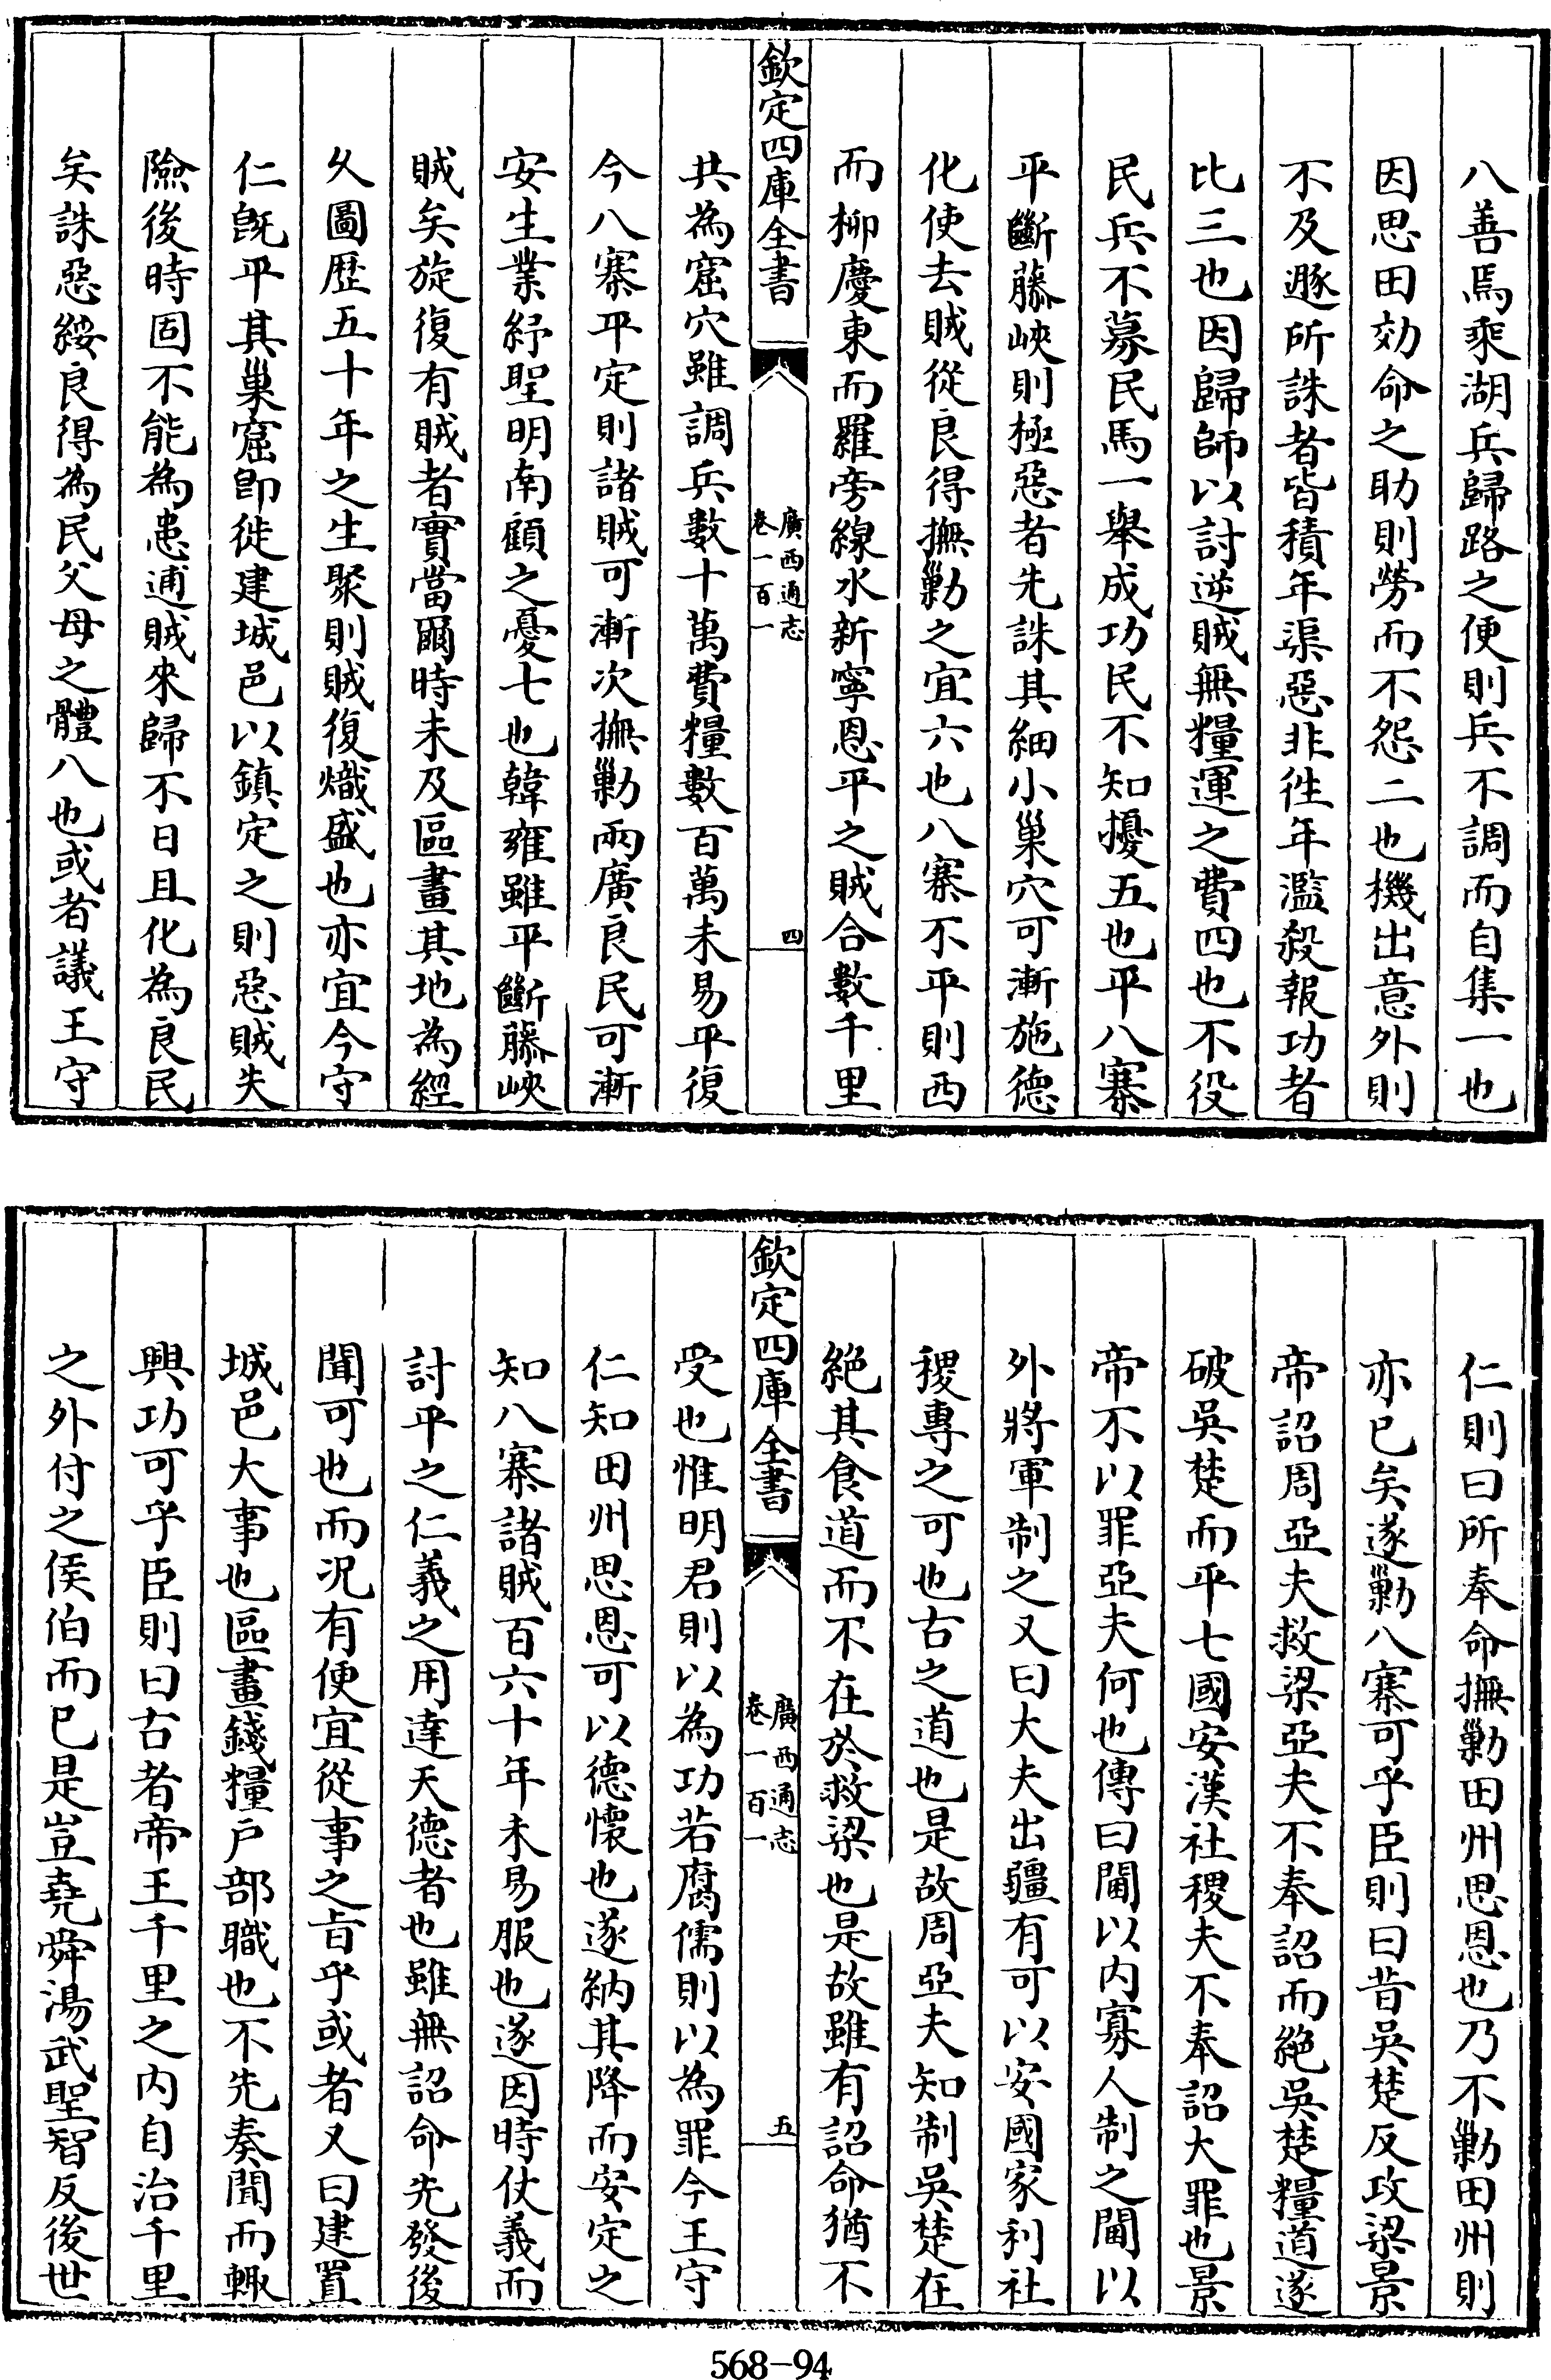 八善焉乘湖兵歸路之便則兵不調而自集一也
因思田効命之助則勞而不怨二也機出意外則
不及遯所誅者皆積年渠惡非徃年濫殺報功者
比三也因歸師以討逆賊無糧運之費四也不役
民兵不募民馬一舉成功民不知擾五也平八寨
平斷藤峽則極惡者先誅其細小巢穴可漸施德
化使去賊從良得撫勦之宜六也八寨不平則西
而柳慶東而羅旁綠水新寧恩平之賊合數千里
欽定四庫全書
廣西通志
卷一百一
四
共為窟穴雖調兵數十萬費糧數百萬未易平復
今八寨平定則諸賊可漸次撫勦兩廣良民可漸
安生業紓聖明南顧之憂七也韓雍雖平斷藤峽
賊矣旋復有賊者實當爾時未及區畫其地為經
久圖歴五十年之生聚則賊復熾盛也亦宜今守
仁既平其巢窟即徙建城邑以鎮定之則惡賊失
險後時固不能為患逋賊來歸不日且化為良民
矣誅惡綏良得為民父母之體八也或者議王守
仁則曰所奉命撫勦田州思恩也乃不勦田州則
亦已矣遂勦八寨可乎臣則曰昔吳楚反攻梁景
帝詔周亞夫救梁亞夫不奉詔而絶吳楚糧道遂
破吳楚而平七國安漢社稷夫不奉詔大罪也景
帝不以罪亞夫何也傳曰閫以内寡人制之閫以
外將軍制之又曰大夫出疆有可以安國家利社
稷專之可也古之道也是故周亞夫知制吳楚在
絶其食道而不在於救梁也是故雖有詔命猶不
欽定四庫全書
廣西通志
卷一百一
五
受也惟明君則以為功若腐儒則以為罪今王守
仁知田州思恩可以德懷也遂納其降而安定之
知八寨諸賊百六十年未易服也遂因時仗義而
討平之仁義之用達天德者也雖無詔命先發後
聞可也而况有便宜從事之㫖乎或者又曰建置
城邑大事也區畫錢糧户部職也不先奏聞而輙
興功可乎臣則曰古者帝王千里之内自治千里
之外付之侯伯而已是豈堯舜湯武聖智反後世
568-94